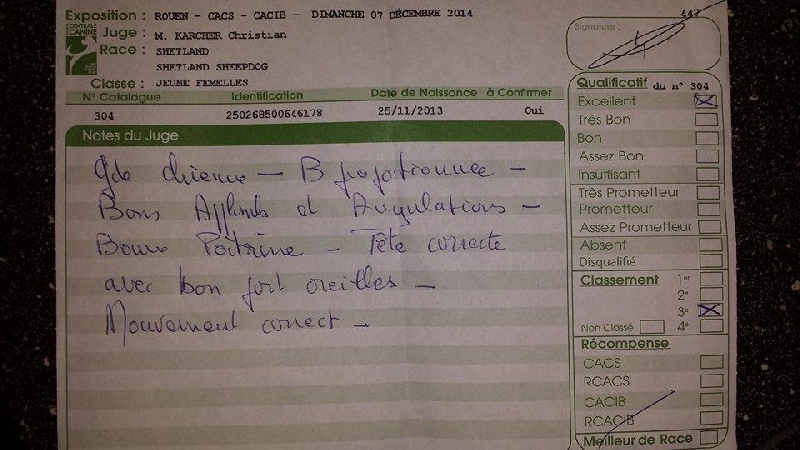 Exposition : ROUEN - CACS - CACIB - DIMANCHE 07 DÉCEMBRE 2014
447
CENTRALE CANINE
Juge : M. KARCHER Christian
Signature :
Race : SHETLAND
SHETLAND SHEEPDOG
Classe : JEUNE FEMELLES
N° Catalogue Identification Date de Naissance à Confirmer
304 250268500646178 25/11/2013 Oui
Notes du Juge
Gde chienne - B proportionnée -
Bons Applombs et Angulations -
Bonne Poitrine - Tête correcte
avec bon port oreilles -
Mouvement correct -
Qualificatif du n° 304
Excellent
Très Bon
Bon
Assez Bon
Insuffisant
Très Prometteur
Prometteur
Assez Prometteur
Absent
Disqualifié
Classement 1er
2e
3e
Non Classé 4e
Récompense
CACS
RCACS
CACIB
RCACIB
Meilleur de Race